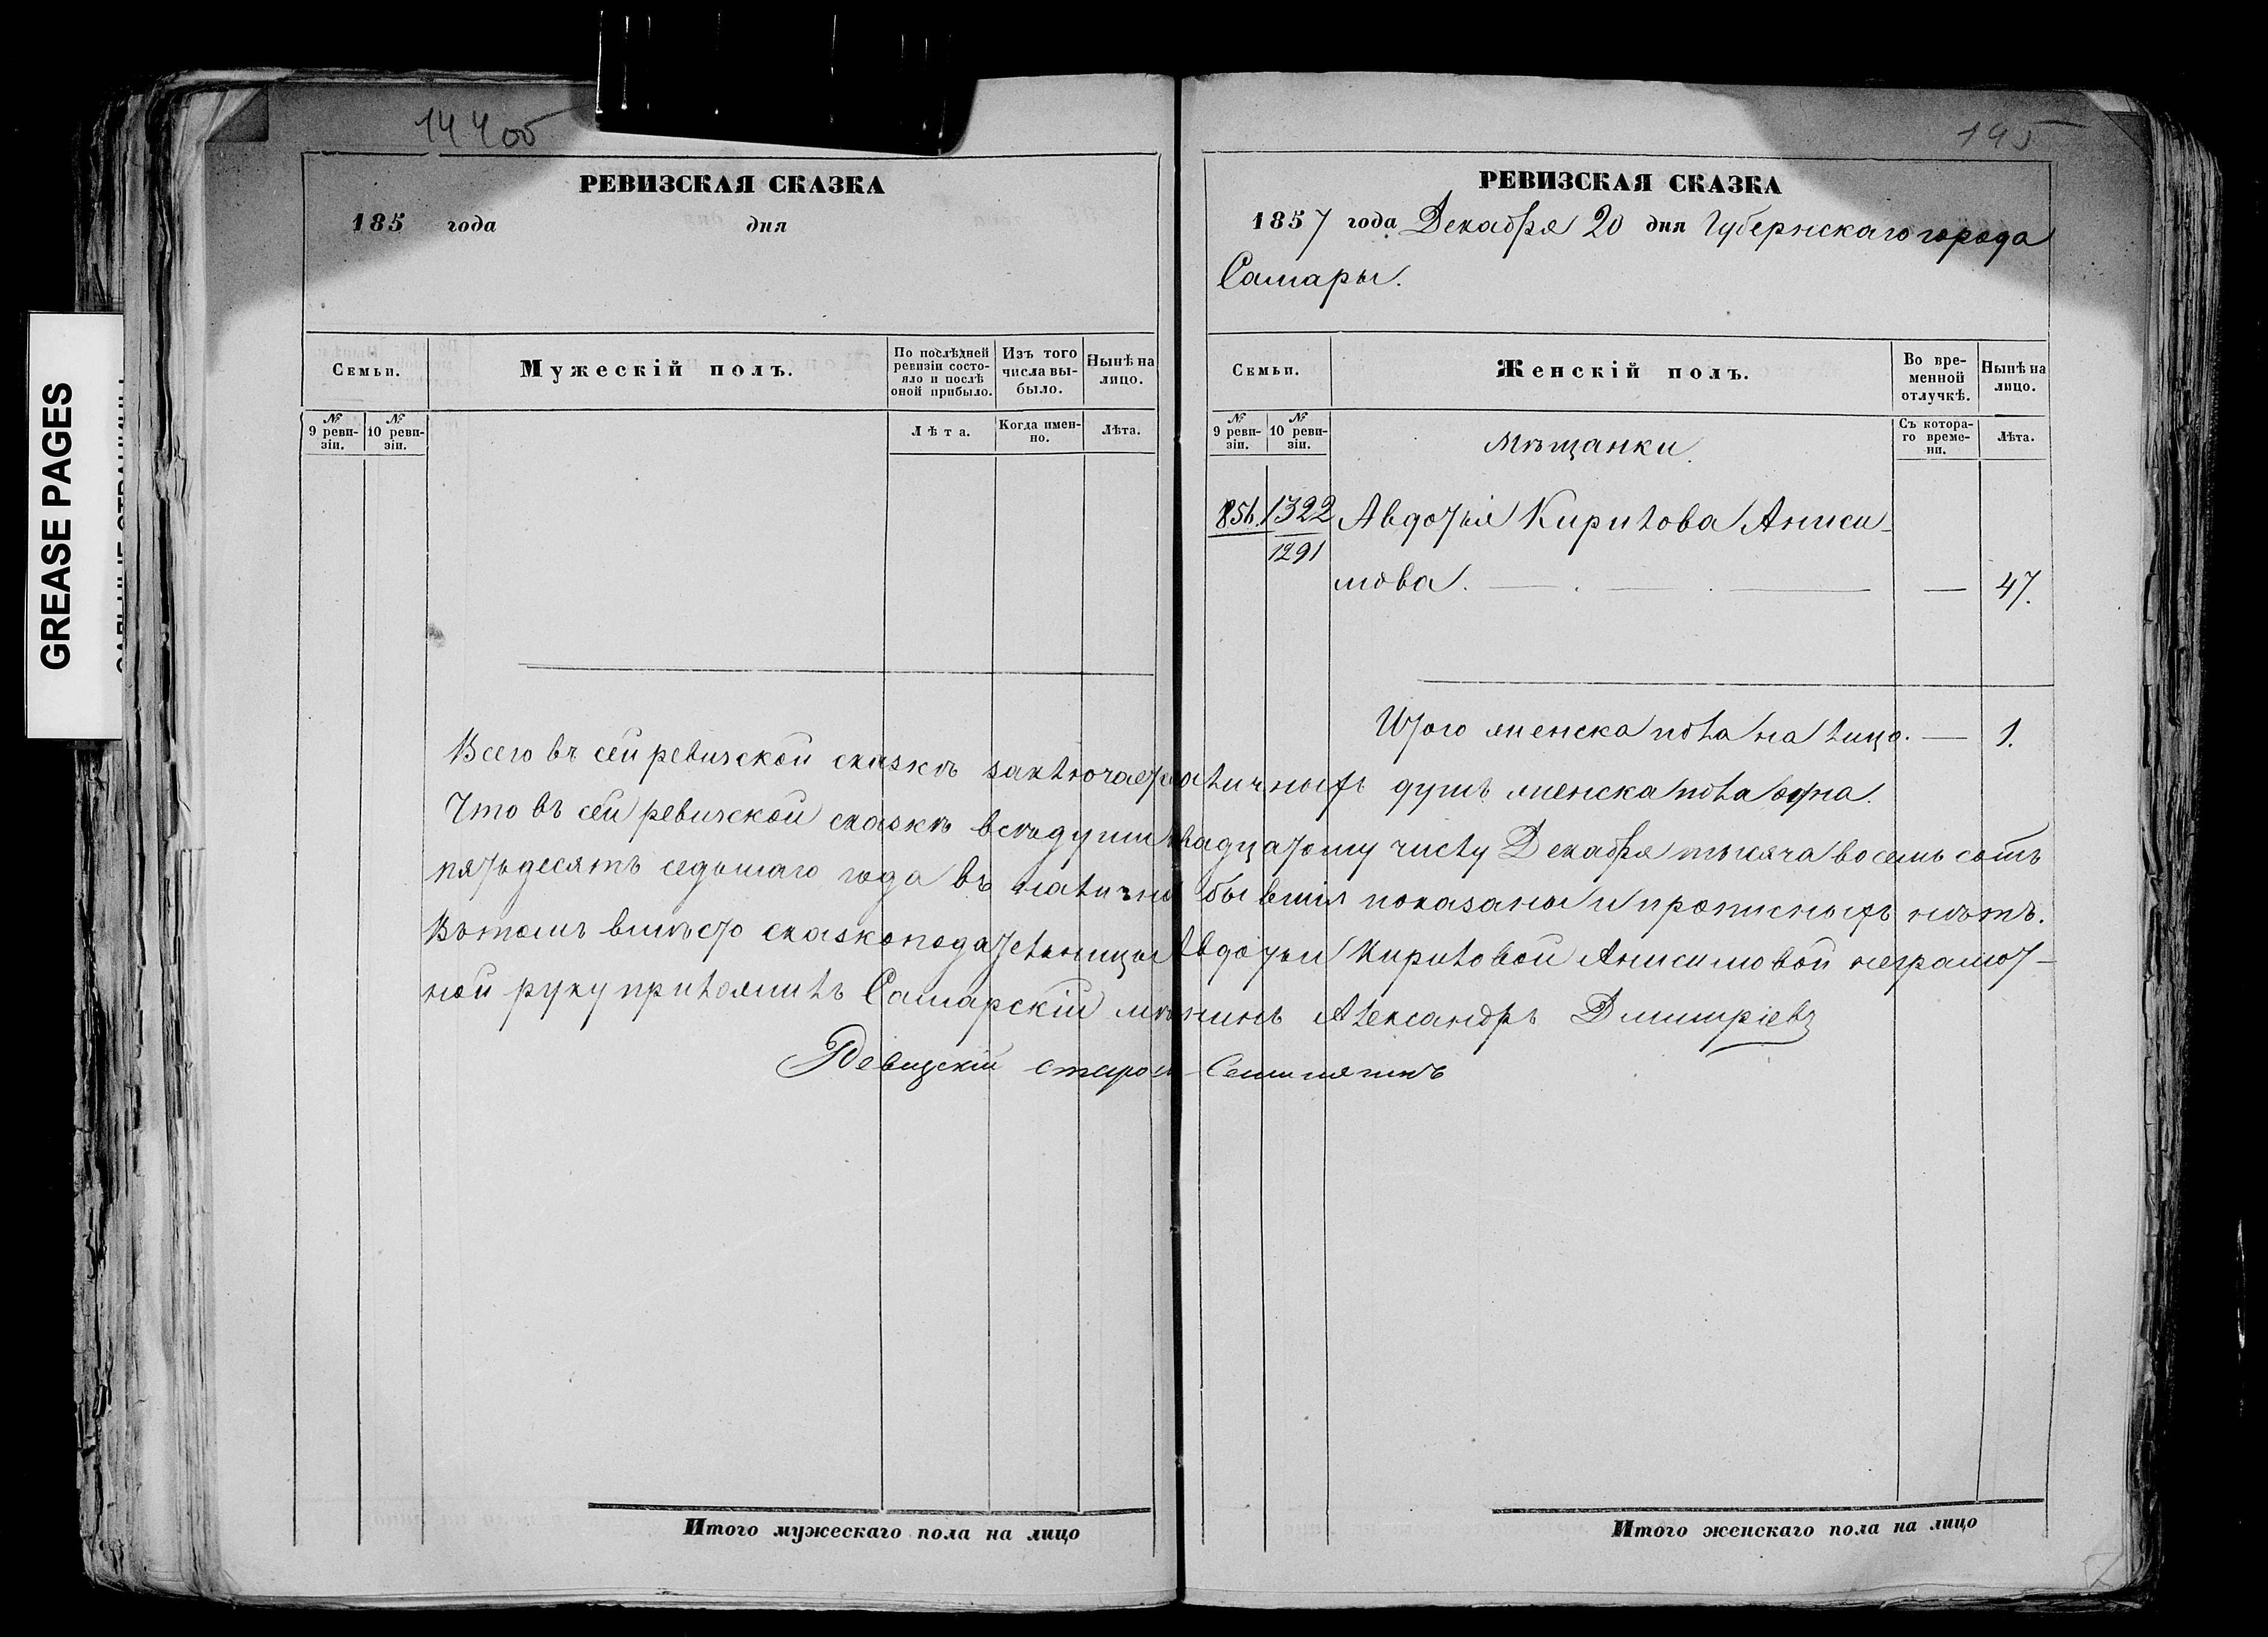 14400
РЕВИЗСКАЯ СКАЗКА
185 года дня
Семьи.
Мужескій полъ.
По послѣдней ревизіи состояло и послѣ оной прибыло.
Изъ того числа выбыло.
Нынѣ на лицо.
№ 9 ревизіи.
№ 10 ревизіи.
Лѣта.
Когда именно.
Лѣта.
195
РЕВИЗСКАЯ СКАЗКА
1857 года Декабря 20 дня Губернскаго города
Самары.
Семьи.
Женскій полъ.
Во временной отлучкѣ.
Нынѣ на лицо.
№ 9 ревизіи.
№ 10 ревизіи.
Мѣщанки.
Съ котораго времени.
Лѣта.
1322 Авдотья Кирилова Аниси-
1291
мова. — — — — 47.
Итого женска пола на лицо. — 1.
Всего въ сей ревизской сказкѣ заключается наличныхъ душъ женска пола одна.
Что въ сей ревизской сказкѣ всѣ души къ двадцатому числу Декабря тысяча восемь сотъ
пятьдесятъ седьмаго года въ наличности бывшія показаны и прописныхъ нѣтъ.
Въ томъ вмѣсто сказкоподательницы Авдотьи Кириловой Анисимовой неграмот-
ной руку приложилъ Самарскій мѣщанинъ Александръ Дмитріевъ
Ревизскій староста
Итого мужескаго пола на лицо
Итого женскаго пола на лицо
GREASE PAGES